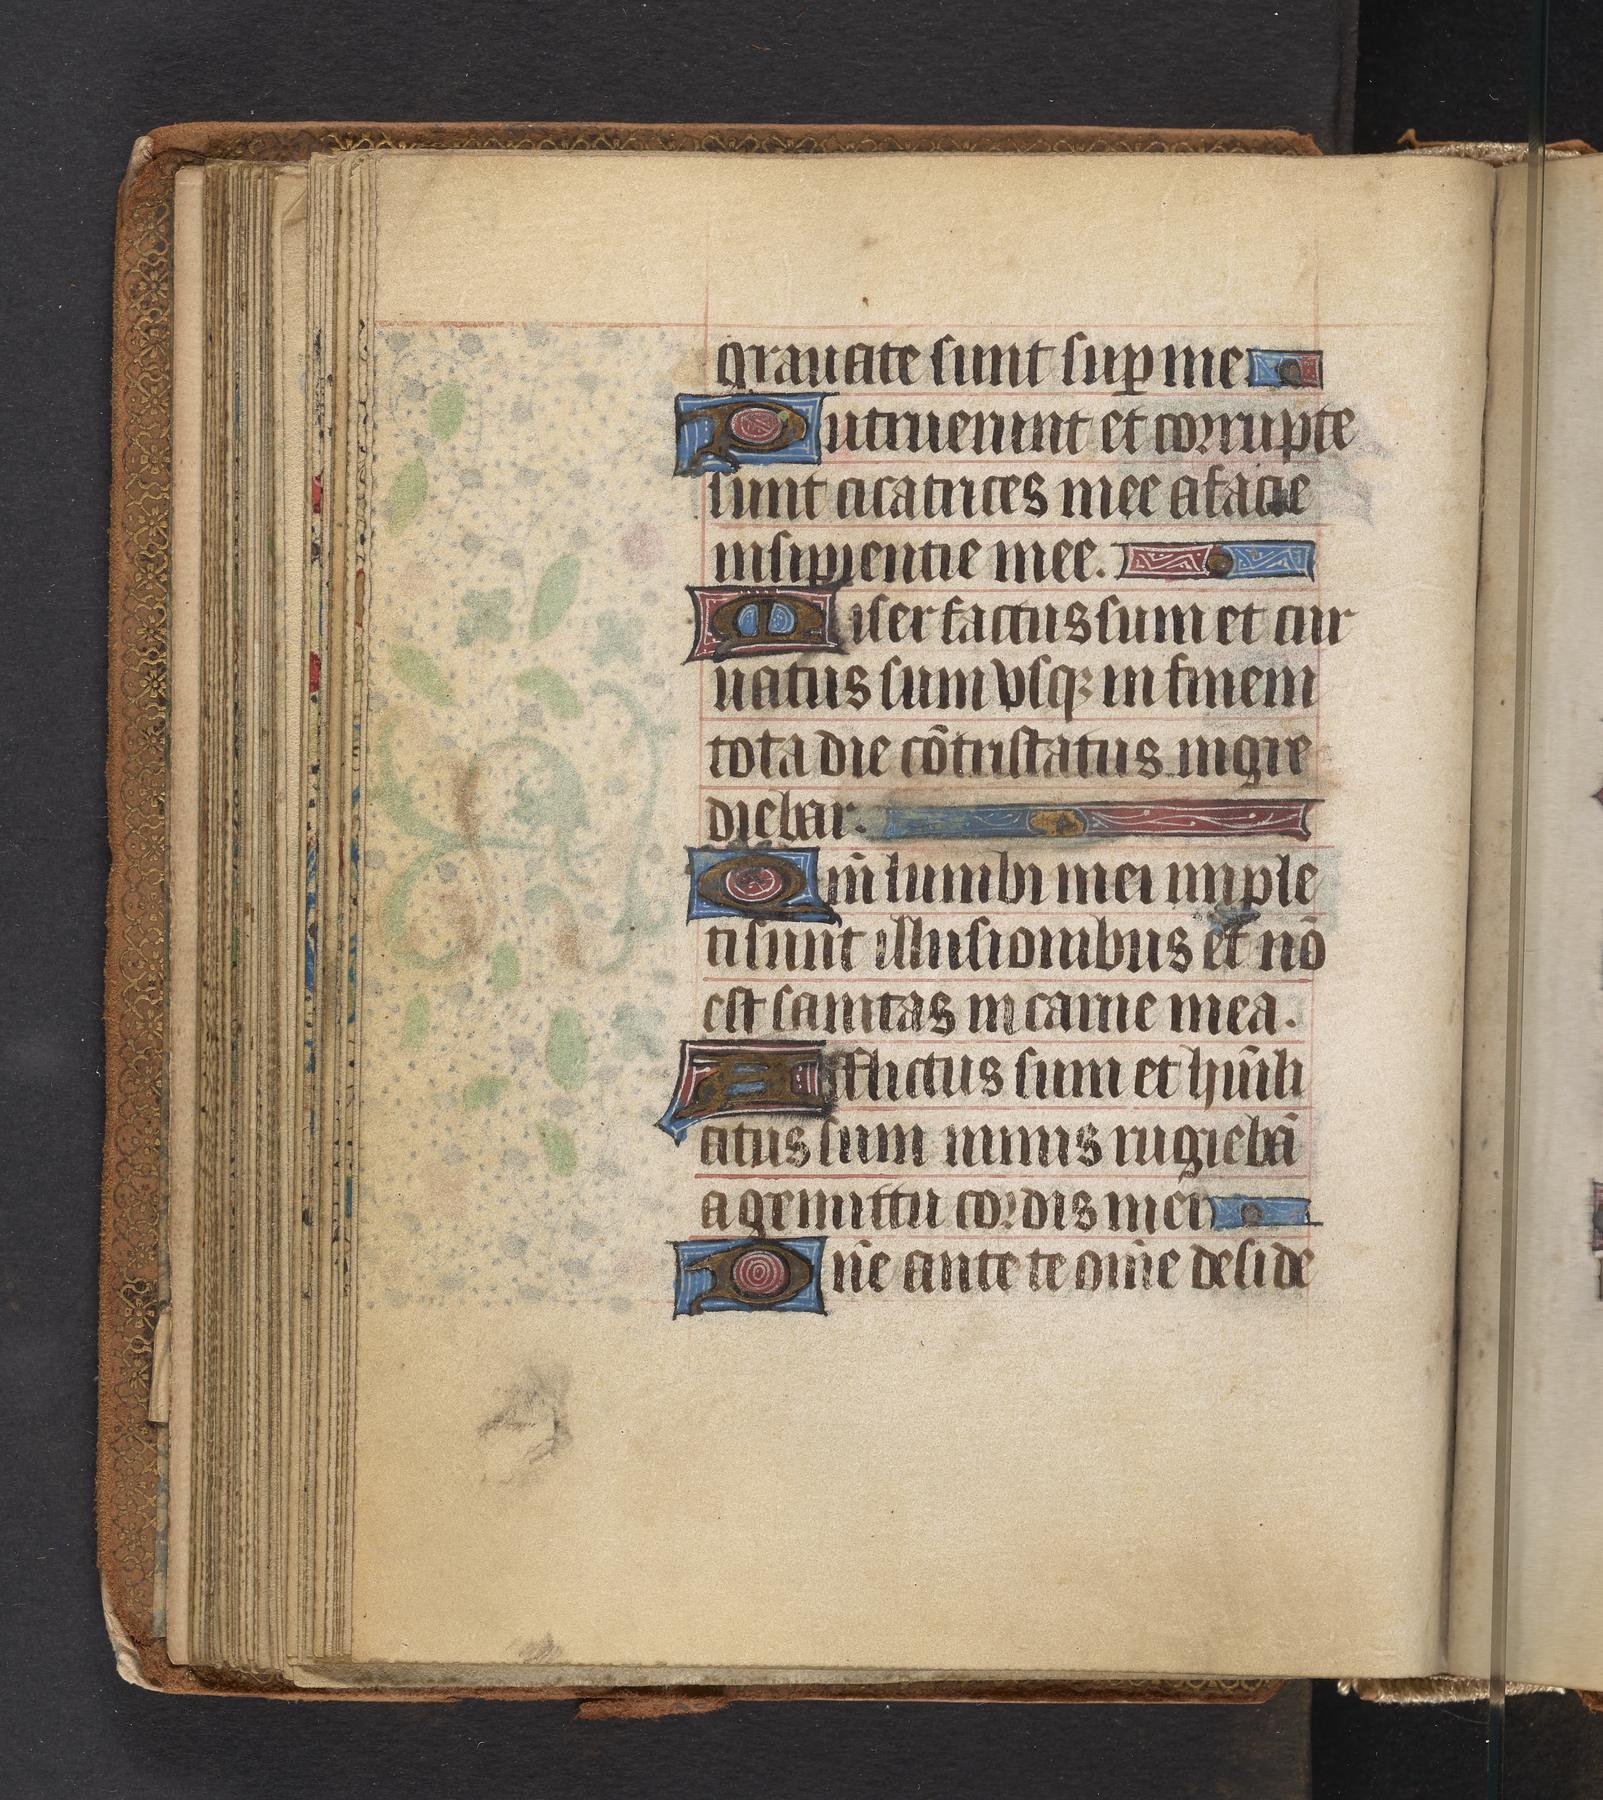 grauate sunt sup̲ me.
Putruerunt et corrupte
sunt cicatrices mee a facie
insipientie mee.
Miser factus sum et cur
uatus sum vsqꝫ in finem
tota die cōtristatus ingre
diebar.
Qm̄ lumbi mei imple
ti sunt illusionibus et nō
est sanitas in carne mea.
Afflictus sum et hūili
atus sum nimis rugiebā
a gemittu cordis mei
Dn̄e ante te om̄e deside